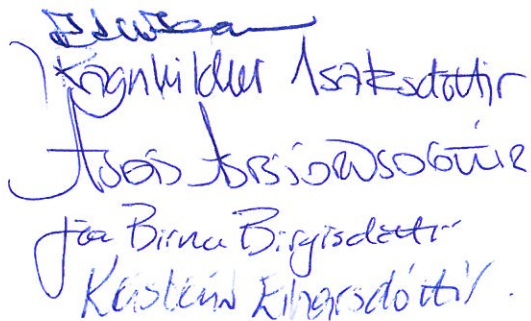 Ragnhildur Ísaksdóttir
Ásdís Ásbjörnsdóttir
Birna Birgisdóttir
Kristín Einarsdóttir